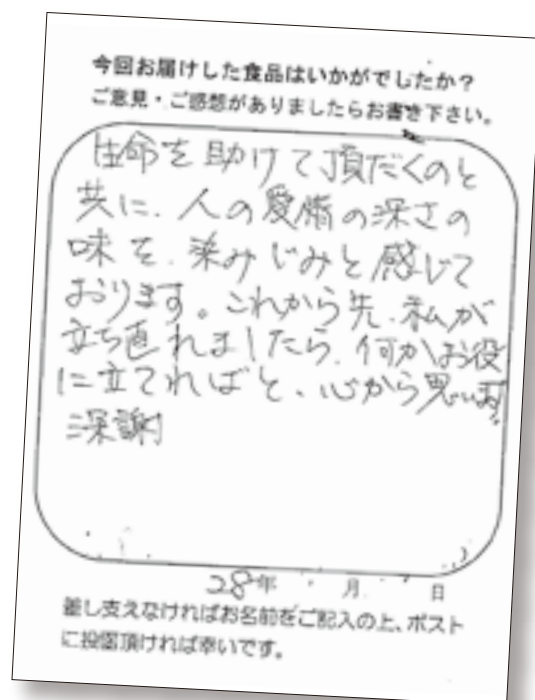 今回お届けした食品はいかがでしたか？
ご意見・ご感想がありましたらお書き下さい。
生命を助けて頂だくのと
共に、人の愛情の深さの
味を、染みじみと感じて
おります。これから先、私が
立ち直れましたら、何かお役
に立てればと、心から思います。
深謝
28年　月　日
差し支えなければお名前をご記入の上、ポスト
に投函頂ければ幸いです。